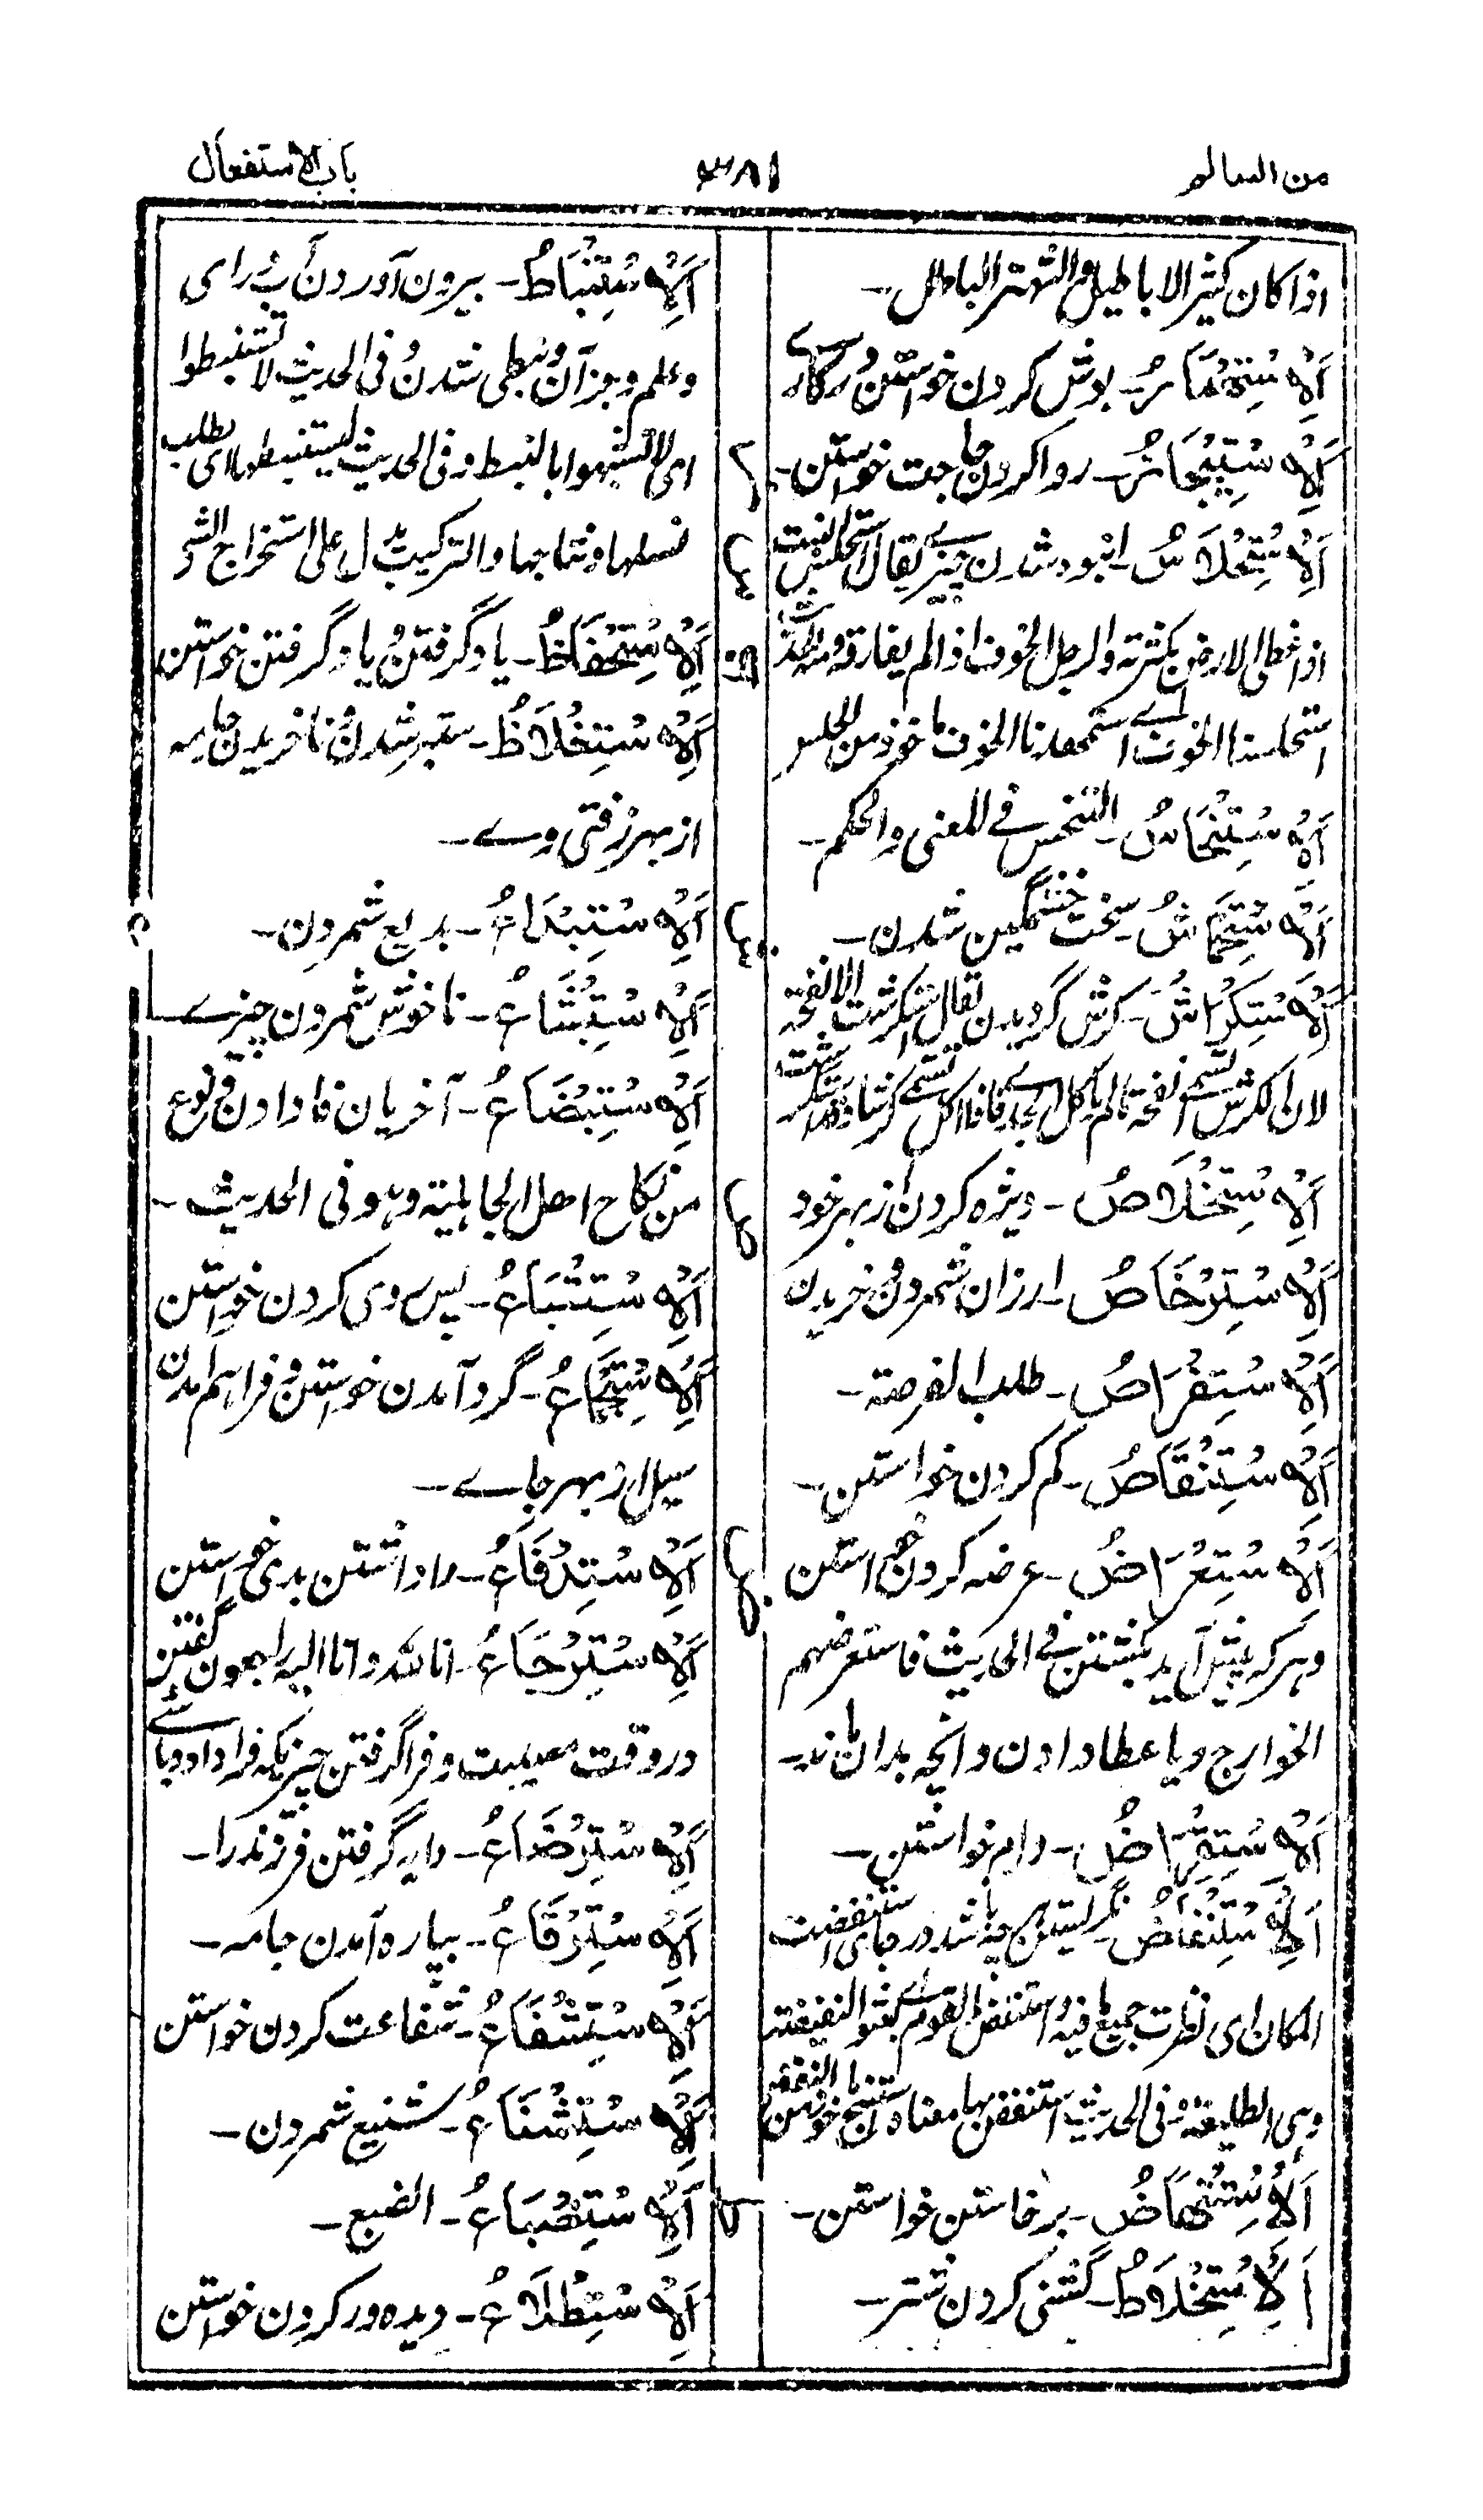 من السالم
۳۸۱
باب الاستفعال
اذا کان کثیر الاباطیل و التهتر الباطل۔
اَلْاِسْتِحْمَارُ۔ بوش کردن خواستن در کارے
اَلْاِسْتِنْجَازُ۔ روا کردن حاجت خواستن۔
اَلْاِسْتِحْلَاسُ۔ انبوه شدن چیزے یقال استحلس النبت
اذا غطی الارض بکثرته والرجل الخوف اذا لم یفارقه ومنه الحدیث
استحلسنا الخوف اے استمهدنا الخوف ماخوذ من الحلس
اَلْاِسْتِنْحَاسُ۔ التنحس فے المعنی والحکم۔
اَلْاِسْتِحْمَاشُ۔ سخت خشمگین شدن۔
اَلْاِسْتِکْرَاشُ۔ کرش گردیدن یقال استکرشت الانفحة
لان الکرش تسمے انفحة مالم یاکل الجدی فاذا اکل تسمے کرشا وقد استکرشت
اَلْاِسْتِخْلَاصُ۔ ویژه کردن از بهر خود
اَلْاِسْتِرْخَاصُ۔ ارزان شمردن و خریدن
اَلْاِسْتِفْرَاصُ۔ طلب الفرصة۔
اَلْاِسْتِنْقَاصُ۔ کم کردن خواستن۔
اَلْاِسْتِعْرَاضُ۔ عرضه کردن خواستن
و هر که پیش آید بکشتن فے الحدیث فاستعرضهم
الخوارج و یا عطا دادن و آنچه بدان ماند۔
اَلْاِسْتِقْرَاضُ۔ وام خواستن۔
اَلْاِسْتِنْفَاضُ۔ نگریستن هر چه باشد در جای استنفضت
المکان ای نظرت جمیع ما فیه و استنفض القوم اے بعثوا النفیضة
وهی الطلیعة وفی الحدیث استنفض بها معناه استنج
اَلْاِسْتِنْهَاضُ۔ برخاستن خواستن۔
اَلْاِسْتِخْلَاطُ۔ گشنی کردن شتر۔
اَلْاِسْتِنْبَاطُ۔ بیرون آوردن آب و رای
و علم و جز آن و نبطی شدن و فی الحدیث لا تستنبطوا
ای لا تشبهوا بالنبط و فی الحدیث لیستنبطها ای یطلب
نسلها و نتاجها و الترکیب یدل علی استخراج الشئ
اَلْاِسْتِحْفَاظُ۔ یاد گرفتن و یاد گرفتن خواستن
اَلْاِسْتِغْلَاظُ۔ ستبر شدن و نا خریدن جامه
از بهر زفتی وے۔
اَلْاِسْتِبْدَاعُ۔ بدیع شمردن۔
اَلْاِسْتِبْشَاعُ۔ ناخوش شمردن چیزے
اَلْاِسْتِبْضَاعُ۔ آخریان فا دادن و نوع
من نکاح اهل الجاهلیة و هو فی الحدیث۔
اَلْاِسْتِتْبَاعُ۔ پس روی کردن خواستن
اَلْاِسْتِجْمَاعُ۔ گرد آمدن خواستن و فراهم آمدن
سیل از بهر جاے۔
اَلْاِسْتِدْفَاعُ۔ وا داشتن بدی خواستن
اَلْاِسْتِرْجَاعُ۔ انا لله و انا الیه راجعون گفتن
در وقت مصیبت و فرا گرفتن چیزیکه فرا داده باشے
اَلْاِسْتِرْضَاعُ۔ دایه گرفتن فرزند را۔
اَلْاِسْتِرْقَاعُ۔ بپاره آمدن جامه۔
اَلْاِسْتِشْفَاعُ۔ شفاعت کردن خواستن
اَلْاِسْتِشْنَاعُ۔ شنیع شمردن۔
اَلْاِسْتِضْبَاعُ۔ الضبع۔
اَلْاِسْتِطْلَاعُ۔ دیده ور کردن خواستن